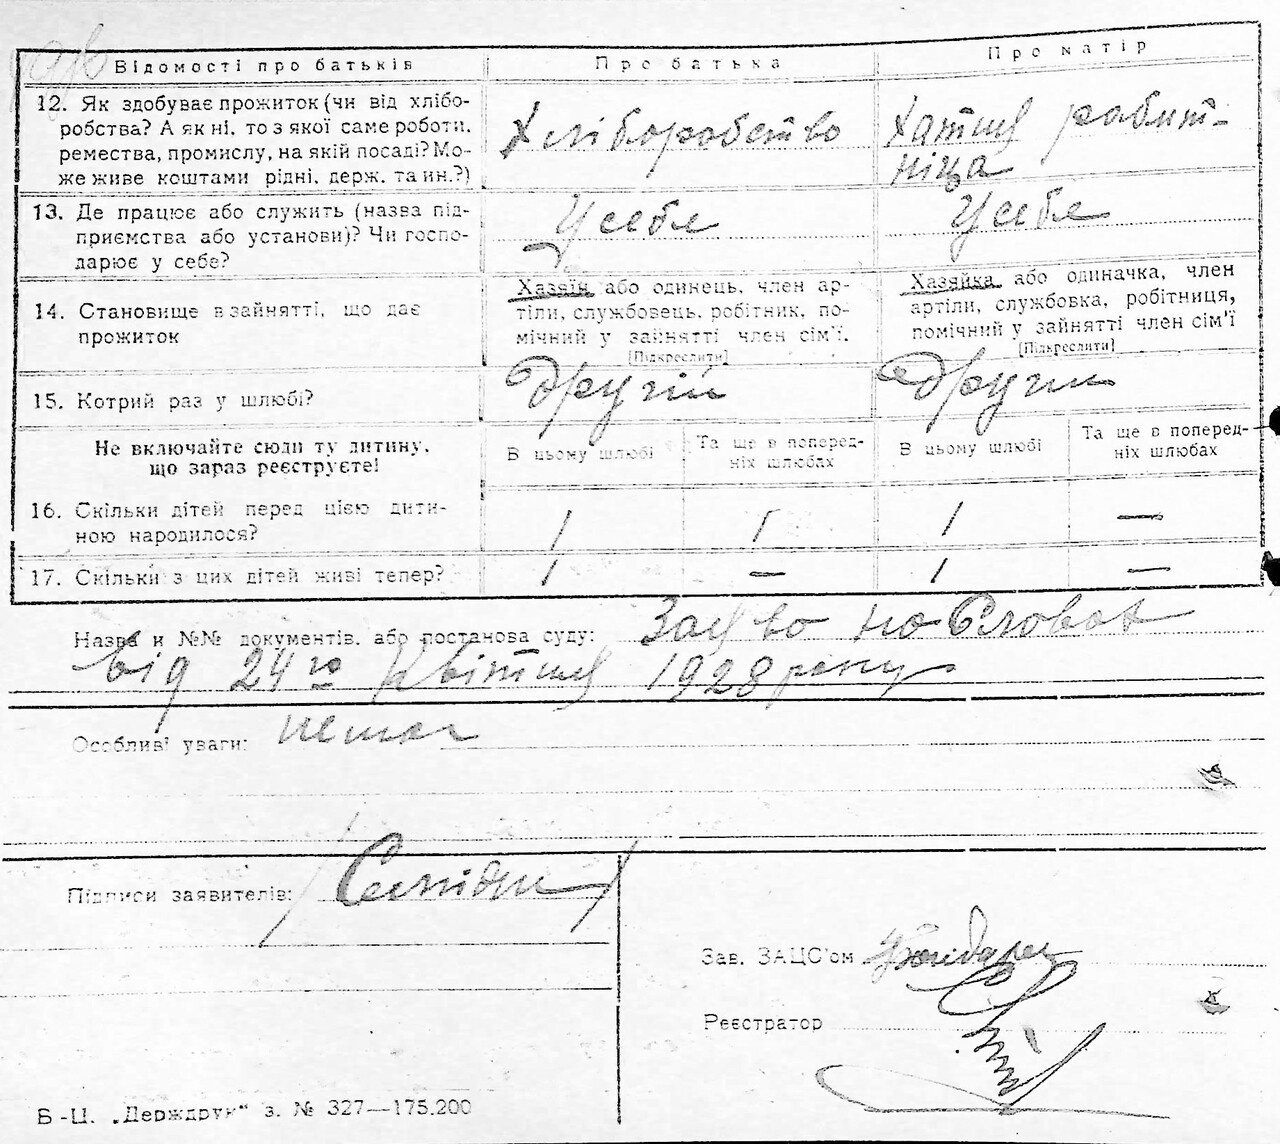 Відомості про батьків
Про батька
Про матір
12. Як здобуває прожиток (чи від хлібо-
робства? А як ні, то з якої саме роботи,
ремества, промислу, на якій посаді? Мо-
же живе коштами рідні, держ. та ин.?)
Хліборобство
Хатня робит-
ніца
13. Де працює або служить (назва під-
приємства або установи)? Чи госпо-
дарює у себе?
У себе
У себе
14. Становище в зайнятті, що дає
прожиток
Хазяїн або одинець, член ар-
тіли, службовець, робітник, по-
мічний у зайнятті член сім'ї.
[Підкреслити]
Хазяйка або одиначка, член
артіли, службовка, робітниця,
помічний у зайнятті член сім'ї
[Підкреслити]
15. Котрий раз у шлюбі?
Другий
Другий
Не включайте сюди ту дитину,
що зараз реєструєте!
В цьому шлюбі
Та ще в поперед-
ніх шлюбах
В цьому шлюбі
Та ще в поперед-
ніх шлюбах
16. Скільки дітей перед цією дити-
ною народилося?
1
1
1
—
17. Скільки з цих дітей живі тепер?
1
—
1
—
Назва и №№ документів, або постанова суду:
від 24го квітня 1928 року
Особливі уваги: немає
Підписи заявителів:
Зав. ЗАЦС'ом
Реєстратор
Б-Ц. „Держдрук" з. № 327—175.200